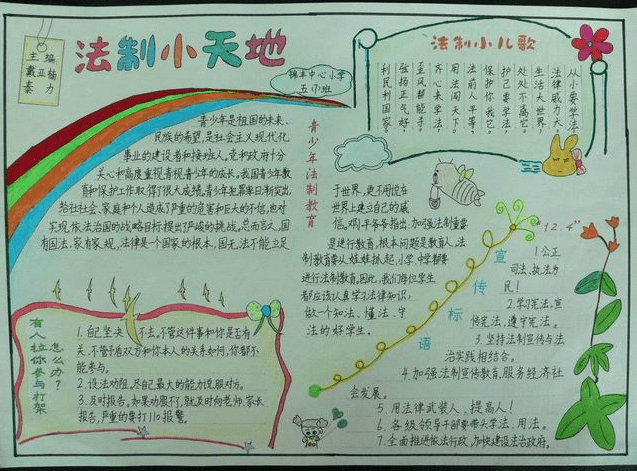 法制小天地
主编
戴亚楠
秦力
锦丰中心小学
五(1)班
法制小儿歌
从小要学法，
法律威力大。
生活大世界，
处处不离它。
护己要学法，
保护你我它。
法前人平等，
用法闯天下。
齐心来学法，
歪风帮能手。
强扬正气好，
利民利国家。
青少年法制教育
青少年是祖国的未来，
民族的希望，是社会主义现代化
事业的建设者和接班人，党和政府十分
关心和高度重视青少年的成长。我国青少年教
育和保护工作取得了很大成绩，青少年犯罪率日渐突出，
给社社会、家庭和个人造成了严重的危害和巨大的不信，也对
实现依法治国的战略目标提出了严峻的挑战。总而言之，国
有国法，家有家规，法律是一个国家的根本，国无法不能立足
于世界，更不用说在
世界上建立自己的威
信。邓小平爷爷指出：加强法制重要
是进行教育，根本问题是教育人，法
制教育要从娃娃抓起，小学、中学都要
进行法制教育。因此，我们每位学生
都应该认真学习法律知识，
做一个知法、懂法、守
法的好学生。
有人拉你参与打架
怎么办？
1.自己坚决不去。不管这件事和你是否有
关，不管于看双方和你本人的关系如何，你都不
能参与。
2.设法劝阻，尽自己最大的能力说服对方。
3.及时报告。如果劝服不了，就及时向老师、家长
报告，严重的要打110报警。
"12.4"
宣传标语
1.公正
司法、执法为
民！
2.学习宪法，宣
传宪法，遵守宪法。
3.坚持法制宣传与法
治实践相结合。
4.加强法制宣传教育，服务经济社
会发展。
5.用法律武装人、提高人！
6.各级领导干部要带头学法、用法。
7.全面推进依法行政，加快建设法治政府。